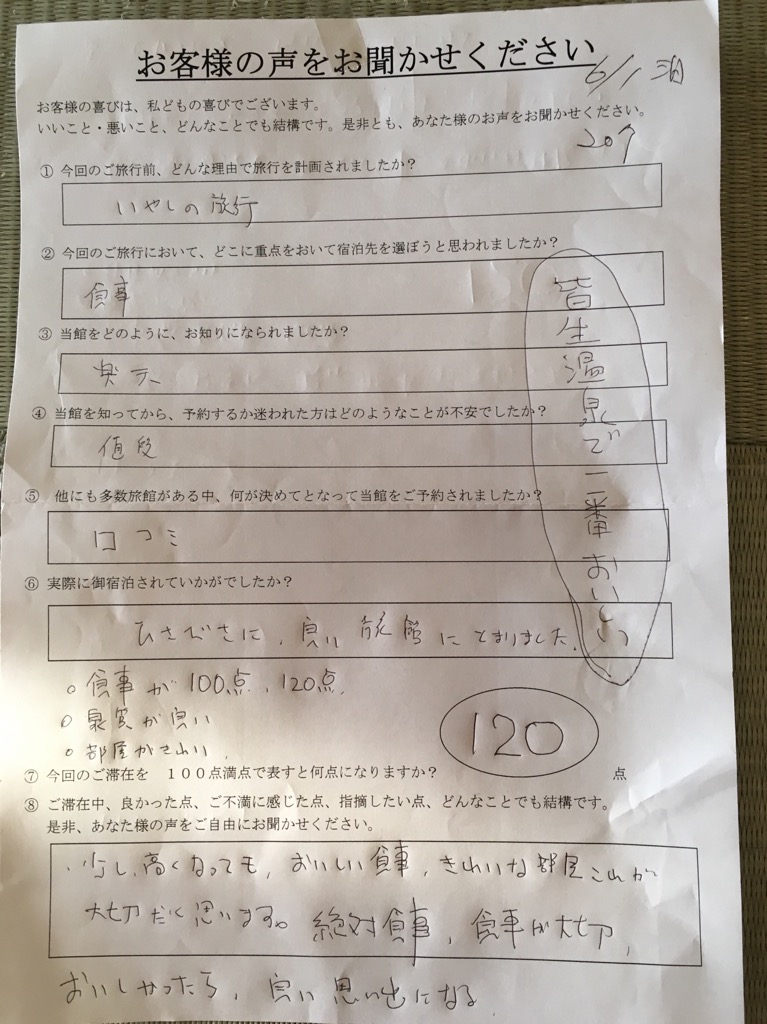 お客様の声をお聞かせください
6/1 泊
お客様の喜びは、私どもの喜びでございます。
いいこと・悪いこと、どんなことでも結構です。是非とも、あなた様のお声をお聞かせください。
207
① 今回のご旅行前、どんな理由で旅行を計画されましたか？
いやしの旅行
② 今回のご旅行において、どこに重点をおいて宿泊先を選ぼうと思われましたか？
食事
③ 当館をどのように、お知りになられましたか？
楽天
④ 当館を知ってから、予約するか迷われた方はどのようなことが不安でしたか？
値段
⑤ 他にも多数旅館がある中、何が決めてとなって当館をご予約されましたか？
口コミ
⑥ 実際に御宿泊されていかがでしたか？
ひさびさに、良い旅館にとまりました。
皆生温泉で一番おいしい
○食事が100点、120点。
○泉質が良い
○部屋がきれい。
120
⑦ 今回のご滞在を １００点満点で表すと何点になりますか？ 点
⑧ ご滞在中、良かった点、ご不満に感じた点、指摘したい点、どんなことでも結構です。
是非、あなた様の声をご自由にお聞かせください。
・少し高くなっても、おいしい食事、きれいな部屋これが
大切だと思います。絶対食事、食事が大切、
おいしかったら、良い思い出になる